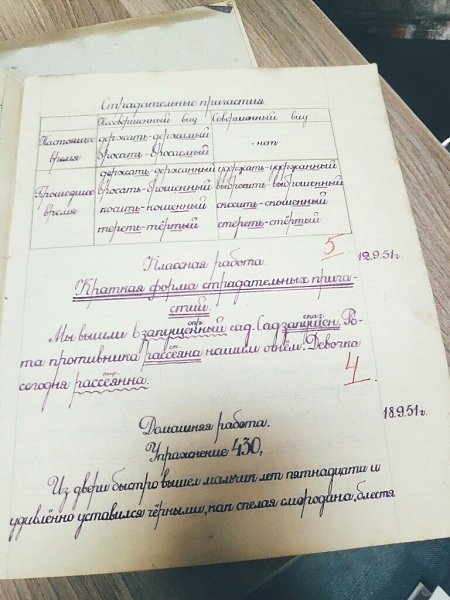 Страдательные причастия
Несовершенный вид Совершенный вид
Настоящее время
держать-держимый
бросать-бросаемый
нет
Прошедшее время
держать-держанный удержать-удержанный
бросать-брошенный выбросить-выброшенный
косить-кошенный скосить-скошенный
тереть-тёртый стереть-стёртый
5
12.9.51г.
Классная работа.
Краткая форма страдательных прича-
стий.
Мы вышли в запущенный сад. Сад запущен. Ро-
та противника рассеяна нашим огнём. Девочка
сегодня рассеянна.
4.
18.9.51г.
Домашняя работа.
Упражнение 430.
Из двери быстро вышел мальчик лет пятнадцати и
удивлённо уставился чёрными, как спелая смородина, блестя